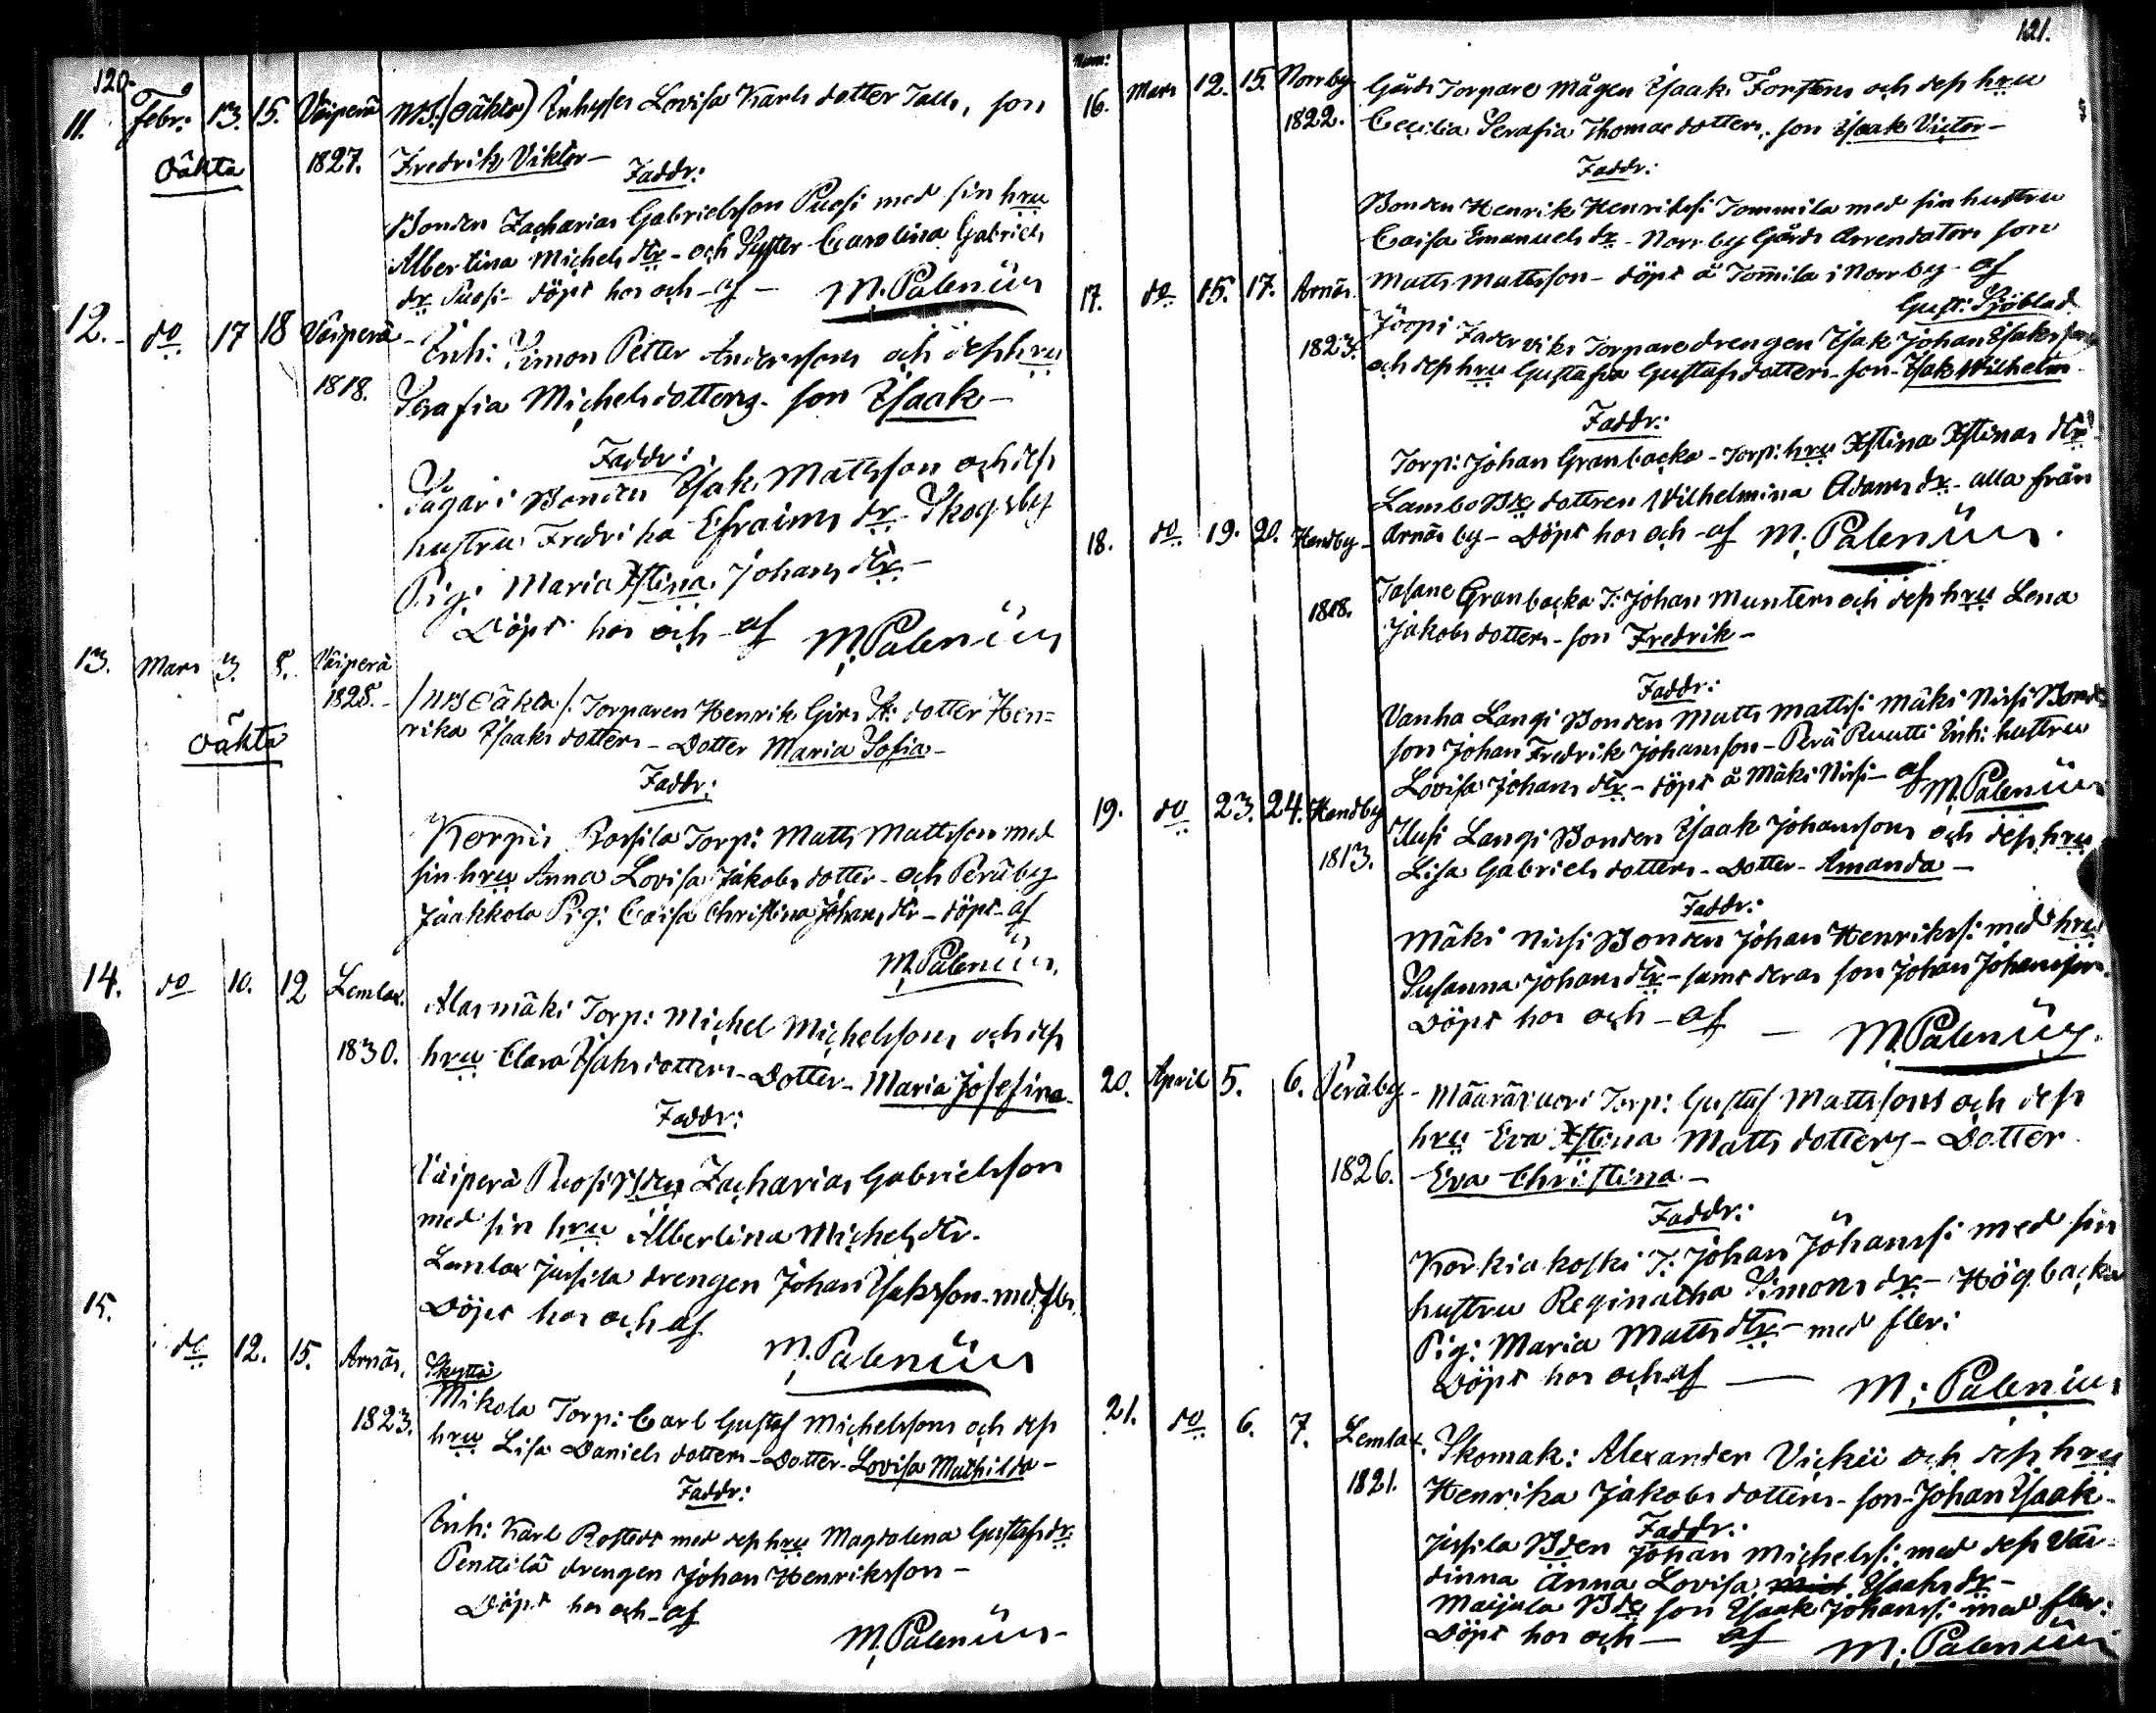 120.
11. Febr: 13. 15. Väiperä NB. (Oäkta) Inhyses Lovisa Karls dotter Talls, son
Oäkta 1827. Fredrik Viktor –
Faddr:
Bonden Zacharias Gabrielsson Puosi med sin hru
Albertina Michels dtr – och Syster Carolina Gabriels
dr Puosi – döpt hos och – af – M. Palenius
12. do 17 18 Väiperä – Inh: Simon Petter Anderssons och dess hru
1818. Serafia Michelsdotters – son Isaak –
Faddr:
Sagari Bonden Isak Mattsson och dess
hustru Fredrika Efraims dr – Skogsby
Pig: Maria Xstina Johans dtr –
Döpt hos och – af M. Palenius
13. Mars 3. 5. Väiperä
1828. – /NB Oäkta/. Torparen Henrik Girs St: dotter Hen=
Oäkta rika Isaaks dotters – Dotter Maria Sofia –
Faddr:
Korpis Rossila Torp: Matts Mattsson med
sin hru Anna Lovisa Jakobs dotter – och Peräby
Jaakkola Pig: Caisa Christina Johans dtr – döpt – af
M. Palenius.
14. do 10. 12 Lemlax. Alasmäki Torp: Michel Michelssons och dess
1830. hru Clara Isaks dotters – Dotter – Maria Josefina –
Faddr:
Väiperä Puosi Bden Zacharias Gabrielsson
med sin hru Albertina Michels dtr.
Lemlax Jussila drengen Johan Isaksson – med fler.
Döpt hos och af M. Palenius
15. do 12. 15. Arnäs. Skyttä
Mikola Torp: Carl Gustaf Michelssons och dess
1823. hru Lisa Daniels dotters – Dotter – Lovisa Mathilda –
Faddr:
Inh: Karl Rostedt med dess hru Magdalena Gustafs dr.
Penttilä drengen Johan Henriksson –
Döpt hos och – af
M. Palenius –
121.
Num:
16. Mars 12. 15. Norrby Gårds Torpare Mågen Isaak Forstens och dess hru
1822. Cecilia Serafia Thomas dotters. son Isaak Victor –
Faddr:
Bonden Henrik Henrikss: Tommila med sin hustru
Caisa Emanuels dr – Norrby Gårds Arrendators son
Matts Mattsson – döpt å Tom̄ila i Norrby – af
Gust: Sjöblad.
17. do 15. 17. Arnäs. Jöopi Faderviks Torpare drengen Isak Johan Isakssons
1823. och dess hru Gustafva Gustafs dotters – son – Isak Wilhelm –
Faddr:
Torp: Johan Granbacka – Torp: hru Xstina Xstinas dtr
Lambo Bde dottren Wilhelmina Adams dr – alla från
Arnäs by – Döpt hos och – af M. Palenius.
18. do 19. 20. Hendby – Tasane Granbacka T: Johan Munters och dess hru Lena
1818. Jakobs dotters – son Fredrik –
Faddr:
Vanha Langi Bonden Matts Mattss: Mäki Nissi Bonde
son Johan Fredrik Johansson – Perä Ruutti Inh: hustru
Lovisa Johans dtr – döpt å Mäki Nissi – af M. Palenius
19. do 23. 24. Hendby Uusi Langi Bonden Isaak Johanssons och dess hru
1813. Lisa Gabriels dotters – Dotter – Amanda –
Faddr:
Mäki Nissi Bonden Johan Henrikss: med hru
Susanna Johans dtr – samt deras son Johan Johansson.
Döpt hos och – af – M. Palenius.
20. April 5. 6. Peräby – Määrävuori Torp: Gustaf Mattssons och dess
hru Eva Xstina Matts dotters – Dotter
1826. Eva Christina. –
Faddr:
Korkiakoski T: Johan Johanss: med sin
hustru Reginatha Simons dr – Högbacka
Pig: Maria Matts dtr – med fler:
Döpt hos och af — M: Palenius
21. do 6. 7. Lemlax. Skomak: Alexander Vickii och dess hru
1821. Henrika Jakobs dotters – son – Johan Isaak –
Faddr:
Jussila Bden Johan Michelss: med dess Vär-
dinna Anna Lovisa Isaaks dr –
Maijala Bde son Isaak Johanss: med fler:
Döpt hos och – af M: Palenius